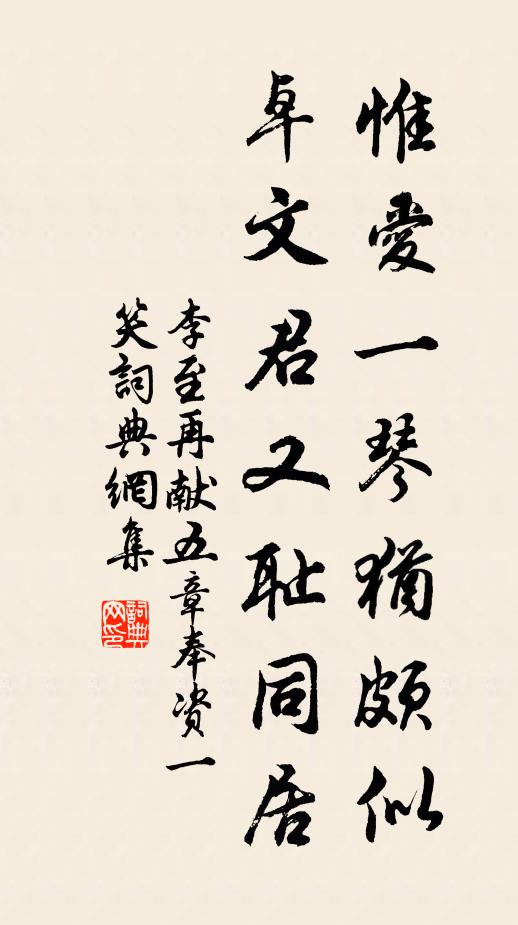 惟愛一琴猶頗似
卓文君又耻同居
李至再献五章奉资一
笑詞典網集
詞典
网印